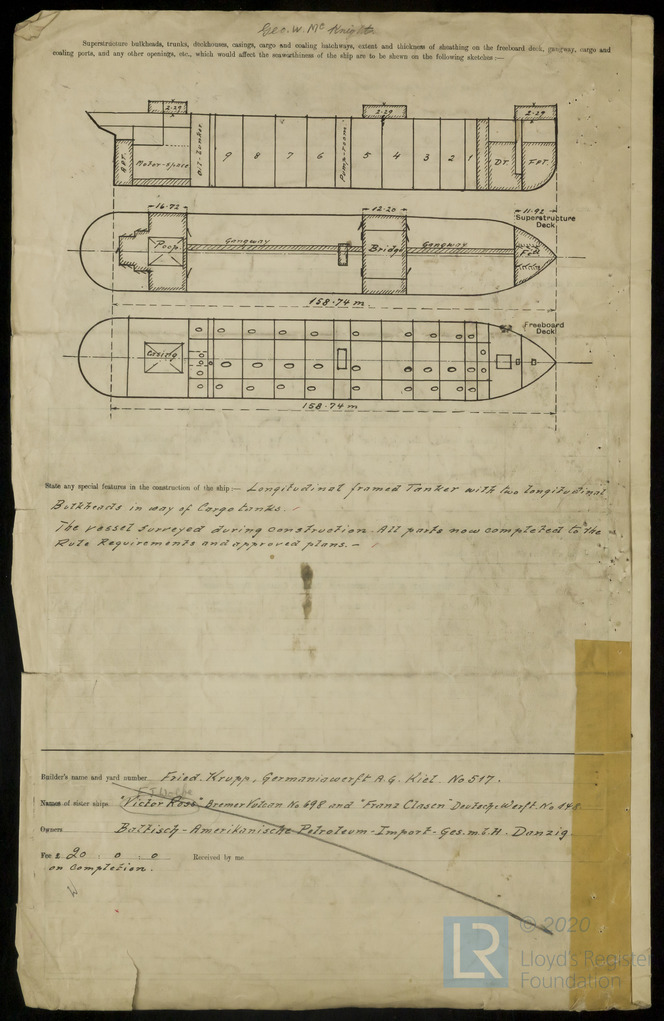 Geo. W. Mc Knight
Superstructure bulkheads, trunks, deckhouses, casings, cargo and coaling hatchways, extent and thickness of sheathing on the freeboard deck, gangway, cargo and
coaling ports, and any other openings, etc., which would affect the seaworthiness of the ship are to be shewn on the following sketches :—
2·29 2·29 2·29
Motor-space Oil-bunker 9 8 7 6 Pump-room 5 4 3 2 1 DT. FPT.
16·72 12·20 11·92
Superstructure
Deck
Poop Gangway Bridge Gangway
158·74 m.
Freeboard
Deck
Casing
158·74 m
State any special features in the construction of the ship :— Longitudinal framed Tanker with two longitudinal
Bulkheads in way of Cargo tanks.
The vessel surveyed during construction. All parts now completed to the
Rule Requirements and approved plans. —
Builder's name and yard number Fried. Krupp, Germaniawerft A.G. Kiel No 517.
Names of sister ships "Victor Ross", Bremer Vulcan No 698 and "Franz Clasen" Deutsch. Werft. No
Owners Baltisch - Amerikanische Petroleum - Import - Ges. m.b.H. Danzig
Fee £ 20 : 0 : 0 Received by me
on Completion.
© 2020
LR Lloyd's Register
Foundation